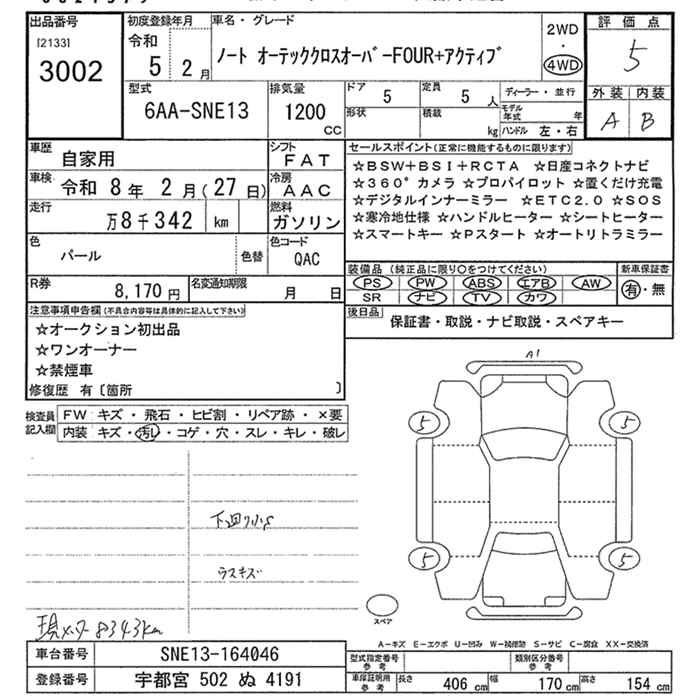 出品番号 初度登録年月 車名・グレード 2WD 評価点
[2133] 令和 ・
3002 5 2月 ノート オーテッククロスオーバーFOUR+アクティブ 4WD 5
型式 排気量 ドア 5 定員 5 人 ディーラー・並行 外装 内装
6AA-SNE13 1200 cc 形状 積載 kg モデル年式 年 A B
ハンドル 左・右
車歴 自家用 シフト FAT セールスポイント(正常に機能するものに限ります)
車検 令和 8年 2月(27日) 冷房 AAC ☆BSW+BSI+RCTA ☆日産コネクトナビ
☆360°カメラ ☆プロパイロット ☆置くだけ充電
走行 万8千342 km 燃料 ガソリン ☆デジタルインナーミラー ☆ETC2.0 ☆SOS
☆寒冷地仕様 ☆ハンドルヒーター ☆シートヒーター
色 パール 色替 色コード QAC ☆スマートキー ☆Pスタート ☆オートリトラミラー
装備品(純正品に限り○をつけてください) 新車保証書
R券 8,170円 名変通知期限 月 日 PS PW ABS エアB AW 有・無
SR ナビ TV カワ
注意事項申告欄(不具合内容等は具体的に記入して下さい) 後日品 保証書・取説・ナビ取説・スペアキー
☆オークション初出品
☆ワンオーナー
☆禁煙車
修復歴 有〔箇所 〕
A1
検査員記入欄 FW キズ・飛石・ヒビ割・リペア跡・×要
内装 キズ・汚レ・コゲ・穴・スレ・キレ・破レ
5 5
ラスキズ
5 5
スペア
現メータ 8343km
A-キズ E-エクボ U-凹み W-補修跡 S-サビ C-腐食 XX-交換済
車台番号 SNE13-164046 型式指定番号 参考 類別区分番号 参考
登録番号 宇都宮 502 ぬ 4191 車庫証明用 参考 長さ 406 cm 幅 170 cm 高さ 154 cm